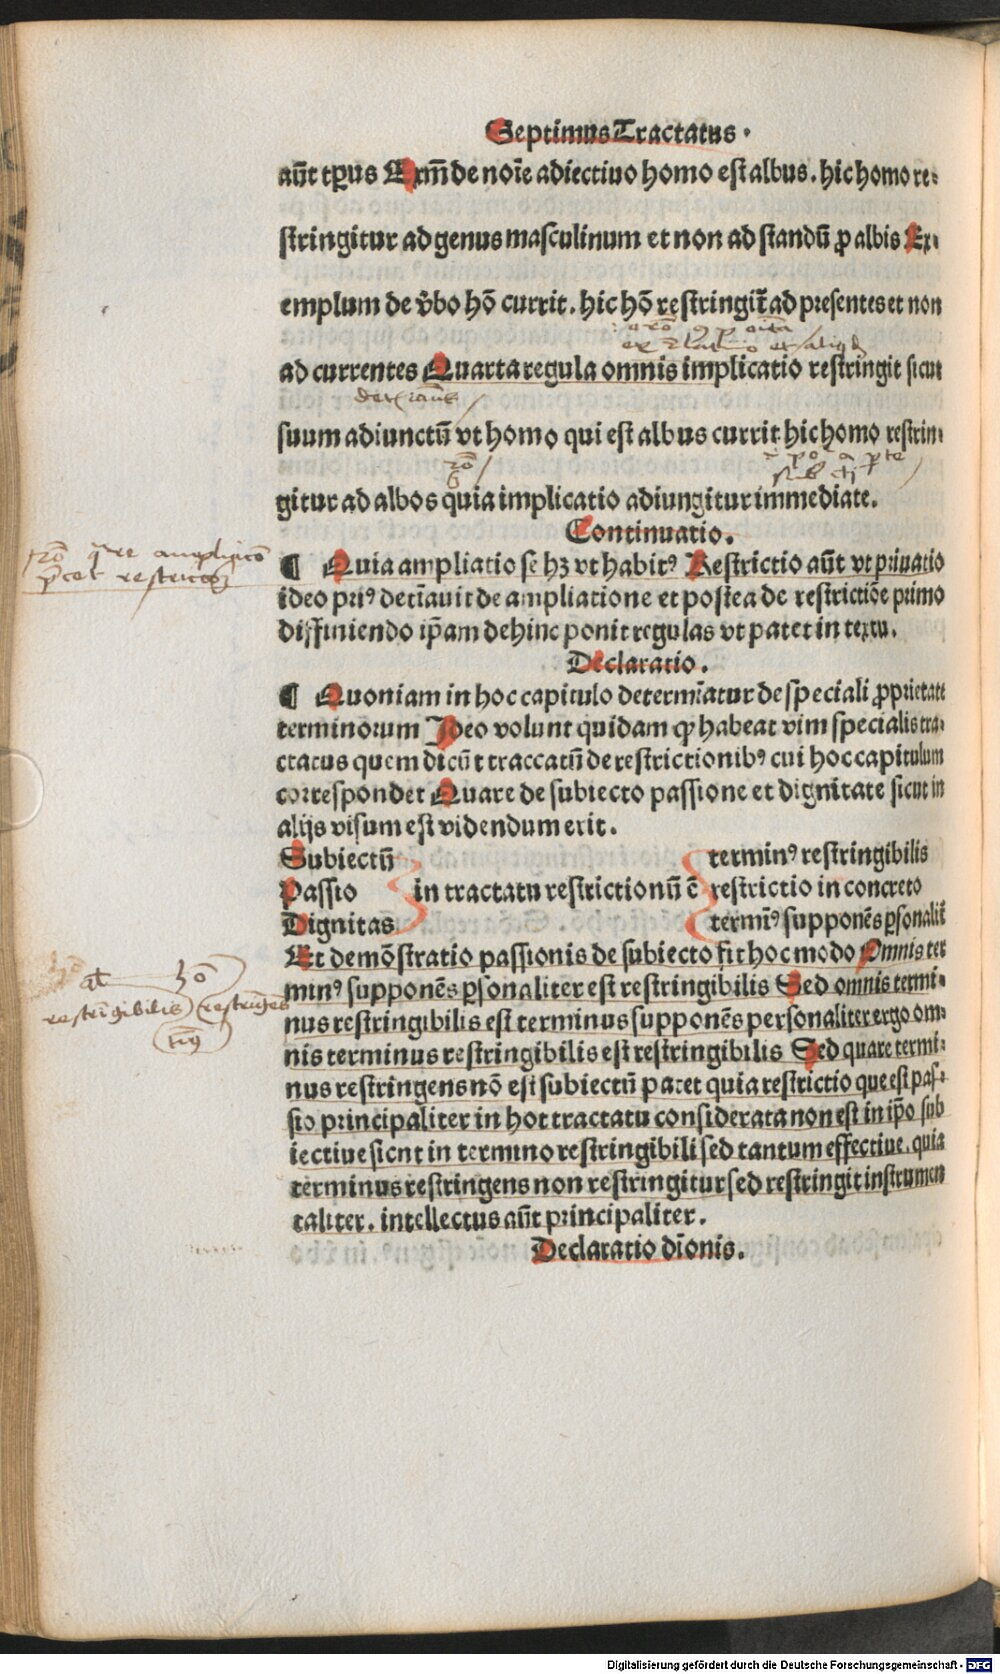 Septimus Tractatus.
aūt tꝑus Exm̄ de noīe adiectiuo homo est albus. hic homo re⸗
stringitur ad genus masculinum et non ad standū ꝓ albis Ex⸗
emplum de v̄bo hō currit. hic hō restringit̄ ad presentes et non
ad currentes Quarta regula omnis implicatio restringit sicut
suum adiunctū vt homo qui est albus currit hic homo restrin⸗
gitur ad albos quia implicatio adiungitur immediate.
Continuatio.
¶ Quia ampliatio se hꝫ vt habitꝰ Restrictio aūt vt priuatio
ideo priꝰ det̄iauit de ampliatione et postea de restrictiōe primo
diffiniendo ip̄am dehinc ponit regulas vt patet in textu.
Declaratio.
¶ Quoniam in hoc capitulo determīatur de speciali ꝓprietate
terminorum Ideo volunt quidam ꝙ habeat vim specialis tra⸗
ctatus quem dicūt traccatū de restrictionibꝰ cui hoc capitulum
correspondet Quare de subiecto passione et dignitate sicut in
alijs visum est videndum erit.
Subiectū
Passio
Dignitas
in tractatu restrictionū ē
terminꝰ restringibilis
restrictio in concreto
termīꝰ supponēs ꝑsonalit̄
Et demōstratio passionis de subiecto fit hoc modo Omnis ter
minꝰ supponēs ꝑsonaliter est restringibilis Sed omnis termi⸗
nus restringibilis est terminus supponēs personaliter ergo om⸗
nis terminus restringibilis est restringibilis Sed quare termi⸗
nus restringens nō est subiectū patet quia restrictio que est pas⸗
sio principaliter in hoc tractatu considerata non est in ip̄o sub
iectiue sicut in termino restringibili sed tantum effectiue. quia
terminus restringens non restringitur sed restringit instrumen
taliter. intellectus aūt principaliter.
Declaratio dīonis.
restringibilis
Digitalisierung gefördert durch die Deutsche Forschungsgemeinschaft - DFG